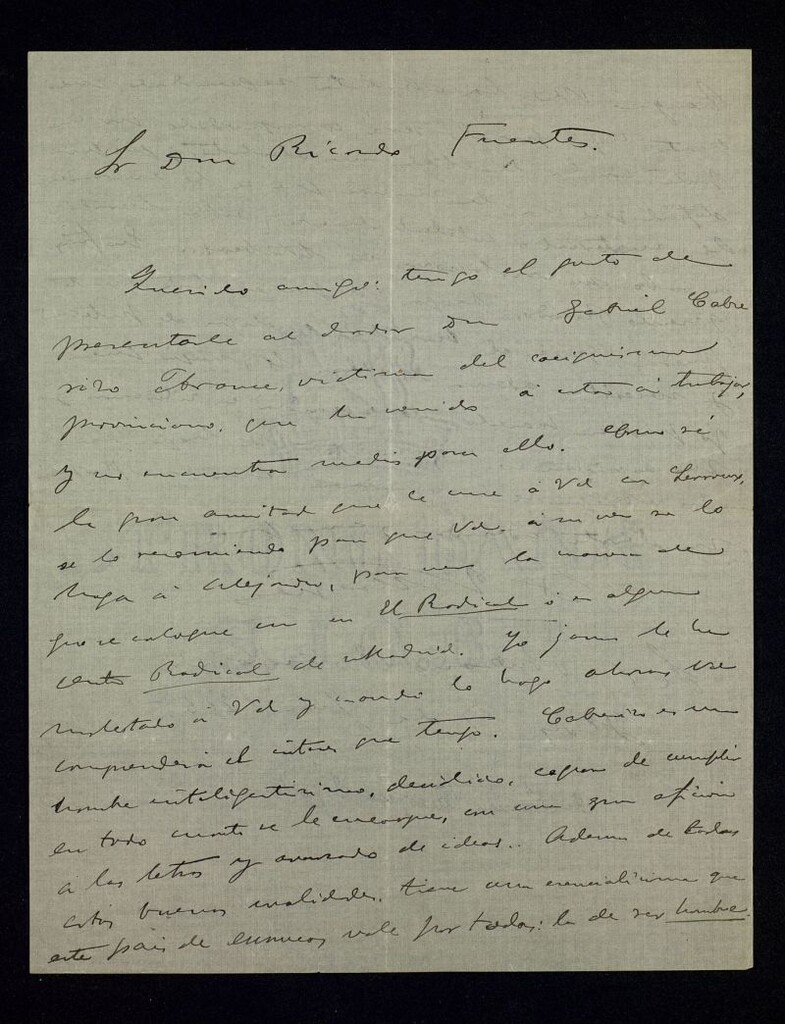 Sr Don Ricardo Fuentes.
Querido amigo: tengo el gusto de
presentarle al dador Don Gabriel Cabre
rizo victima del caciquismo
provinciano, que ha venido á esta á trabajar,
y no encuentra medio para ello. Como sé
la gran amistad que le une á Vd con Lerroux,
se lo recomiendo para que Vd. á su vez se lo
haga á Alejandro, para ver la manera de
que se coloque en El Radical ó en algun
centro Radical de Madrid. Yo jamas le he
molestado á Vd y cuando lo hago ahora
comprenderá el interes que tengo. Cabrerizo es un
hombre inteligentisimo, decidido, capaz de cumplir
en todo cuanto se le encargue, con una gran aficion
á las letras y avanzado de ideas.. Ademas de todas
estas buenas cualidades, tiene una esencialisima que
este pais de eunucos vale por todas: la de ser hombre.